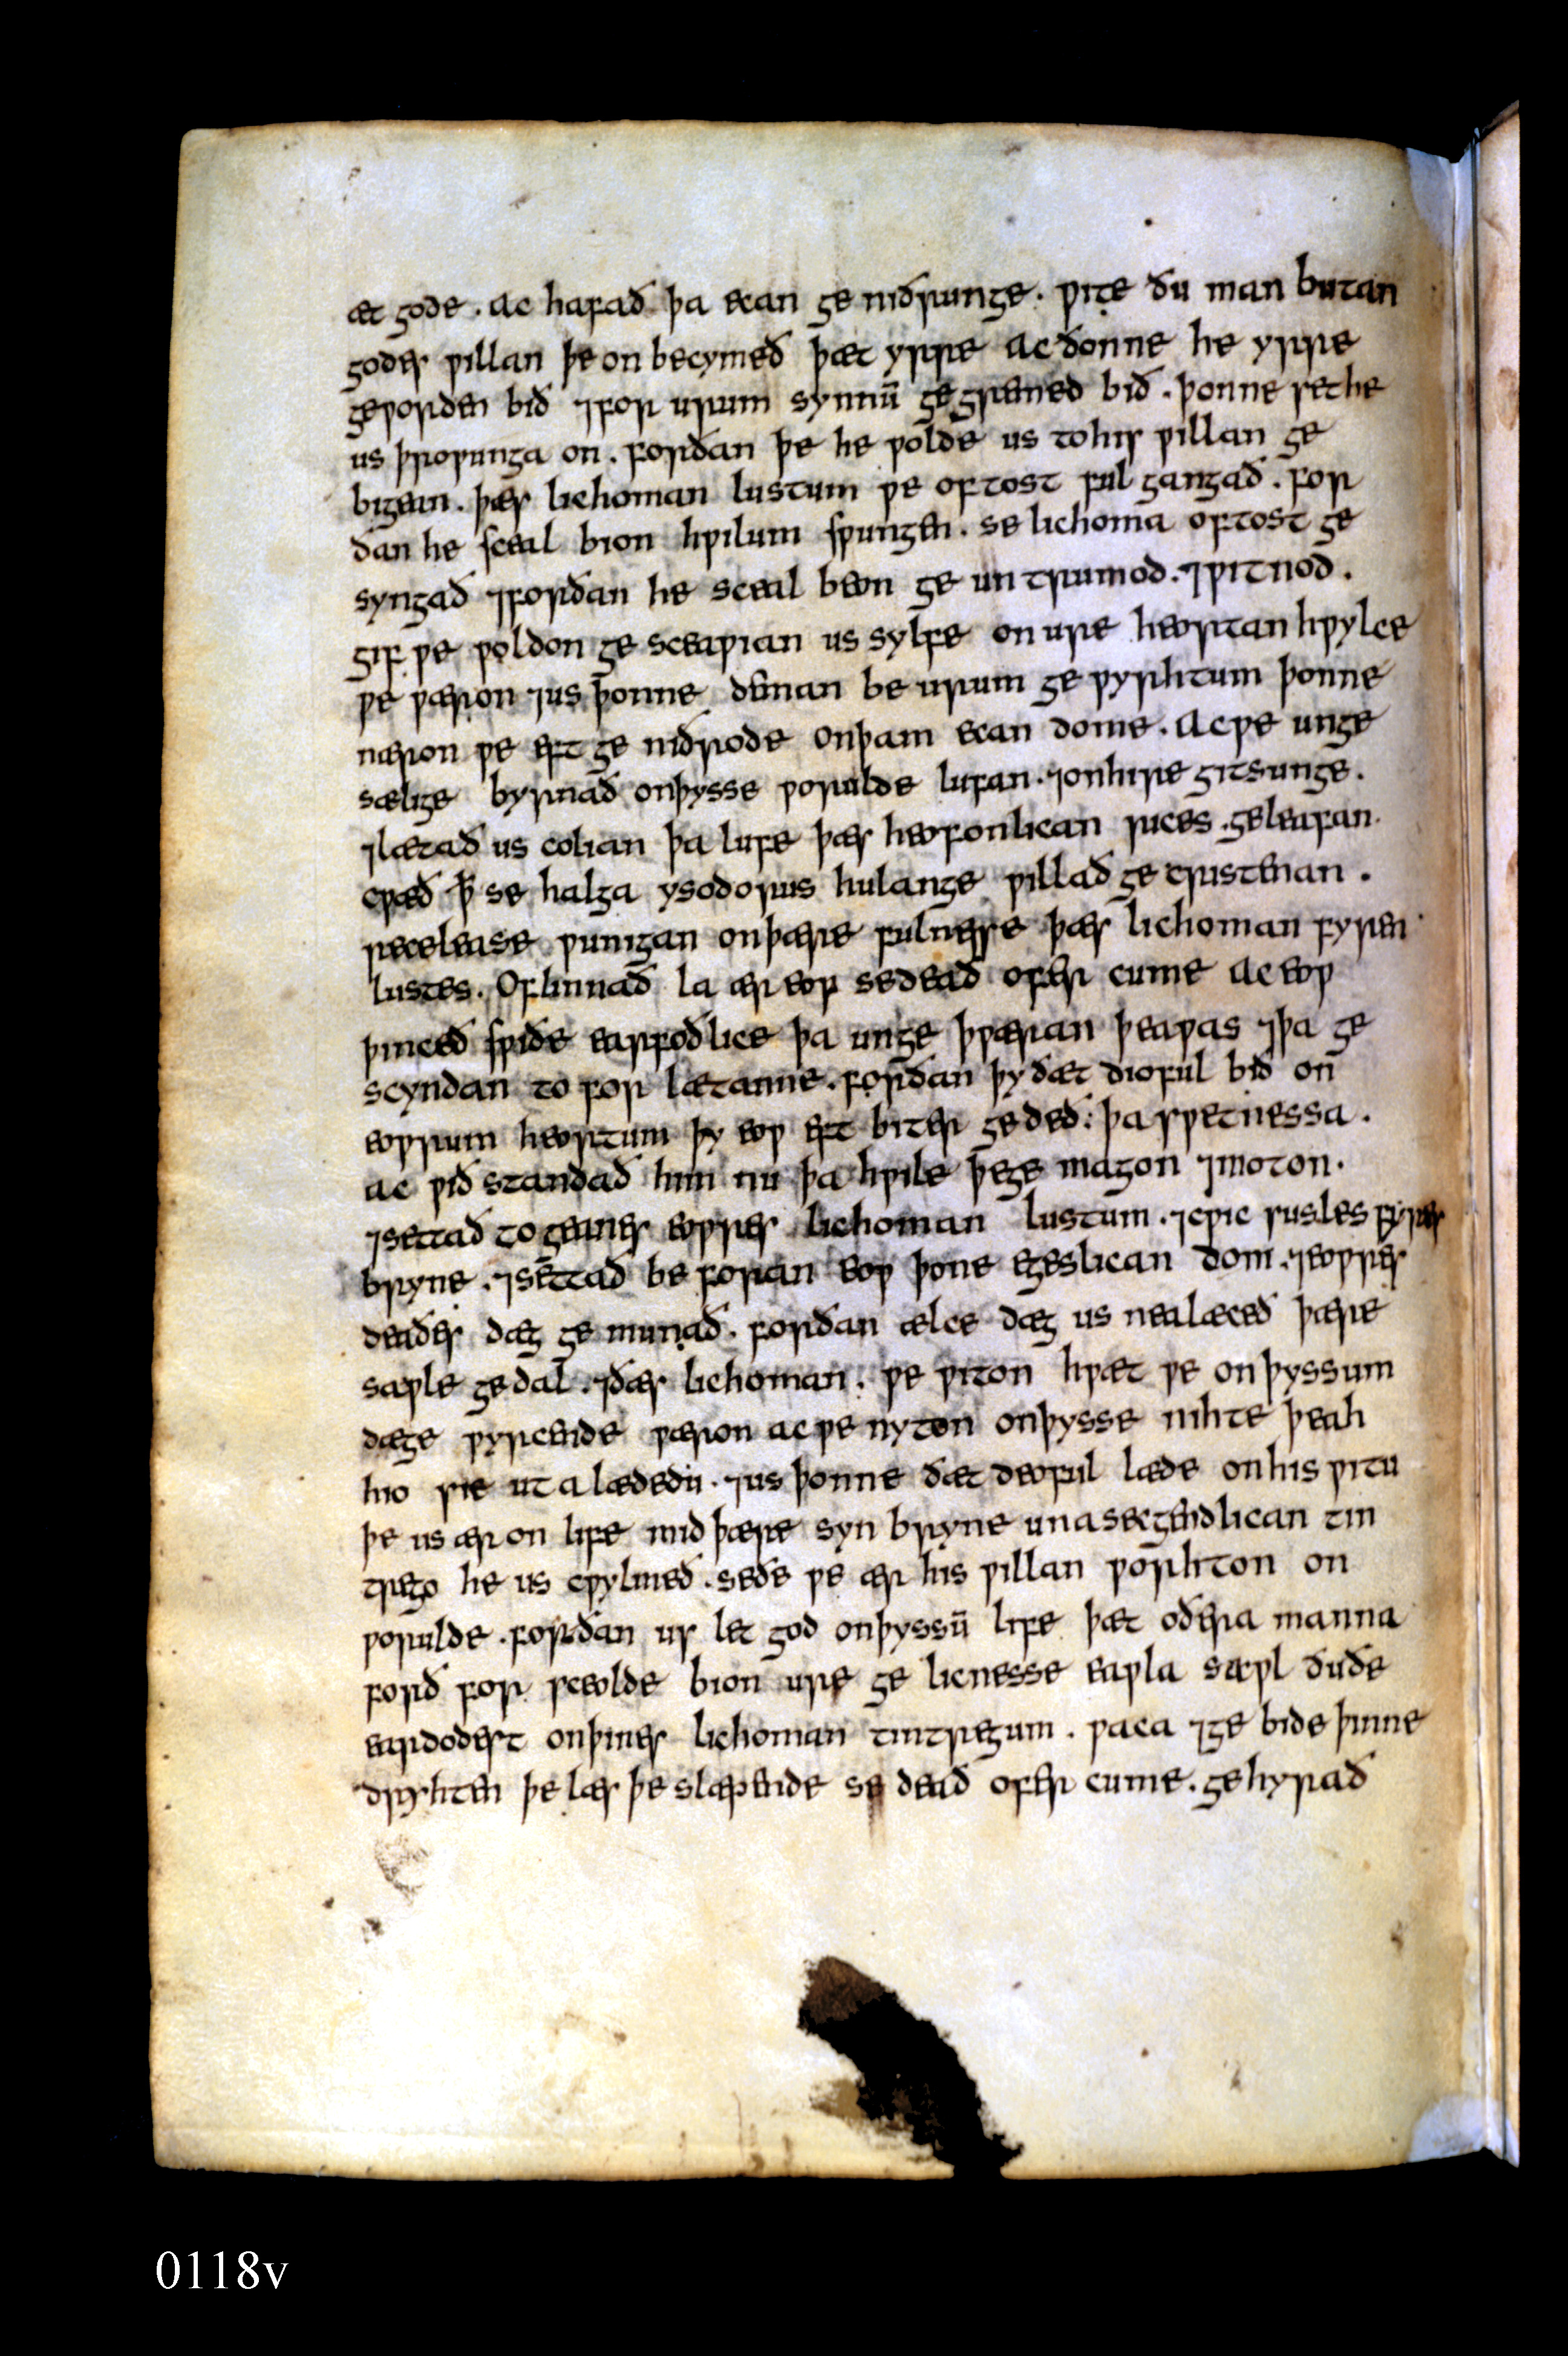 æt gode . ac hafað þa ecan ge niðrunge . ƿite ðu man butan
godes ƿillan þe on becymeð þæt yrre ac ðonne he yrre
geƿorden bið ⁊for urum synnū ge gremed bið . þonne set he
us þroƿunga on . forðan þe he ƿolde us to his ƿillan ge
bigein . þæs lichoman lustum ƿe oftost ful gangað . for
ðan he sceal bion hƿilum sƿungen . se lichoma oftost ge
syngað ⁊forðan he sceal beon ge un trumod . ⁊ƿitnod .
gif ƿe ƿoldon ge sceaƿian us sylfe on ure heortan hƿylce
ƿe ƿæron ⁊us þonne deman be urum ge ƿyrhtum þonne
næron ƿe eft ge niðrode onþam ecan dome . Ac ƿe unge
sælige byrnað onþysse ƿorulde lufan . ⁊onhire gitsunge .
⁊lætað us colian þa lufe þæs heofonlican rices . geleafan .
cƿæð þ̄ se halga ysodorus hulange ƿillað ge cristenan .
recelease ƿunigan onþære fulnesse þæs lichoman fyren
lustes . Oflinnað la ær eoƿ se deað ofer cume ac eoƿ
þinceð sƿiðe earfoðlice þa unge þƿæran þeaƿas ⁊þa ge
scyndan to for lætanne . forðan þy ðæt dioful bið on
eoƿrum heortum þy eoƿ eft biter ge deð : þa sƿetnessa .
ac ƿið standað him nu þa hƿile þe ge magon ⁊moton .
⁊settað to geanes eoƿres lichoman lustum . ⁊cƿic susles fyres
bryne . ⁊settað be foran eoƿ þone egeslican dom . ⁊eoƿres
deaðes dæg ge munað . forðan ælce dæg us nealæceð þære
saƿle ge dal . ⁊ðæs lichoman . ƿe ƿiton hƿæt ƿe on þyssum
dæge ƿyrcende ƿæron ac ƿe nyton onþysse nihte þeah
hio sie ut a lædedu . ⁊us þonne ðæt deoful læde onhis ƿitu
þe us ær on life mid þære syn bryne unasecgendlican tin
trego he us cƿylmeð . seðe ƿe ær his ƿillan ƿorhton on
ƿorulde . forðan us let god onþyssū life þæt oðera manna
forð for sceolde bion ure ge licnesse eaƿla saƿl ðuðe
eardodest onþines lichoman tintregum . ƿaca ⁊ge bide þinne
dryhten þe læs þe slæpende se deað ofer cume . ge hyrað
0118v